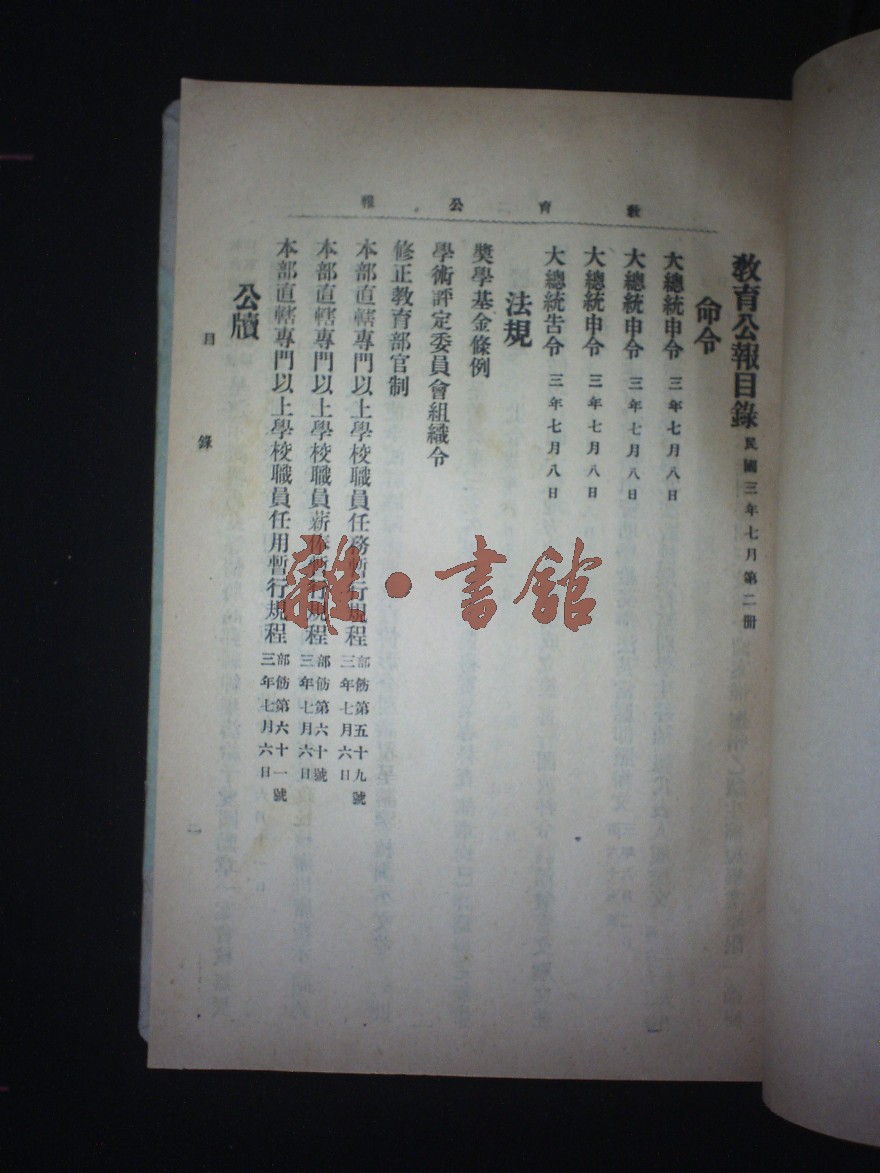 教育公報
教育公報目錄 民國三年七月第二冊
命令
大總統申令 三年七月八日
大總統申令 三年七月八日
大總統申令 三年七月八日
大總統告令 三年七月八日
法規
獎學基金條例
學術評定委員會組織令
修正教育部官制
本部直轄專門以上學校職員任務暫行規程 部飭第五十九號 三年七月六日
本部直轄專門以上學校職員薪俸暫行規程 部飭第六十號 三年七月六日
本部直轄專門以上學校職員任用暫行規程 部飭第六十一號 三年七月六日
公牘
目錄
雜·書館